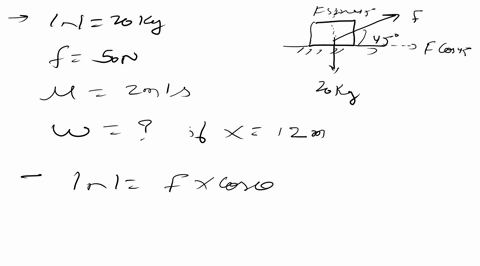 → |m| = 20 Kg
f = 50N
u = 2m/s
w = ? if x = 12 m
- |m| = f x cosθ
F sin 45
F
45°
F Cos 45
20 Kg